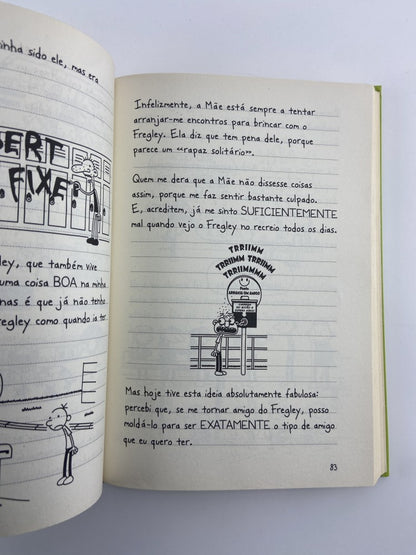 nha sido ele, mas era
BERT
FIXE
ley, que também vive
uma coisa BOA na minha
nas é que já não tenho
regley como quando ia ter.
Infelizmente, a Mãe está sempre a tentar
arranjar-me encontros para brincar com o
Fregley. Ela diz que tem pena dele, porque
parece um "rapaz solitário".
Quem me dera que a Mãe não dissesse coisas
assim, porque me faz sentir bastante culpado.
E, acreditem, já me sinto SUFICIENTEMENTE
mal quando vejo o Fregley no recreio todos os dias.
TRRIIMM
TRRIIMM TRRIIMM
TRRIIMMMM
Mas hoje tive esta ideia absolutamente fabulosa:
percebi que, se me tornar amigo do Fregley, posso
moldá-lo para ser EXATAMENTE o tipo de amigo
que eu quero ter.
83